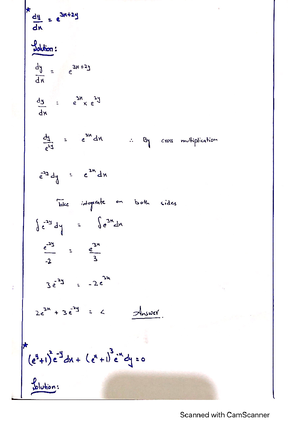 * dy/dx = e^(3x+2y)
Solution:
dy/dx = e^(3x+2y)
dy/dx = e^(3x) × e^(2y)
dy/e^(2y) = e^(3x) dx ∴ By cross multiplication
e^(-2y) dy = e^(3x) dx
Take integrate on both sides
∫e^(-2y) dy = ∫e^(3x) dx
e^(-2y)/-2 = e^(3x)/3
3e^(-2y) = -2e^(3x)
2e^(3x) + 3e^(-2y) = c Answer.
*
(e^y+1)^2 e^(-y) dx + (e^x+1)^3 e^(-x) dy = 0
Solution:
Scanned with CamScanner